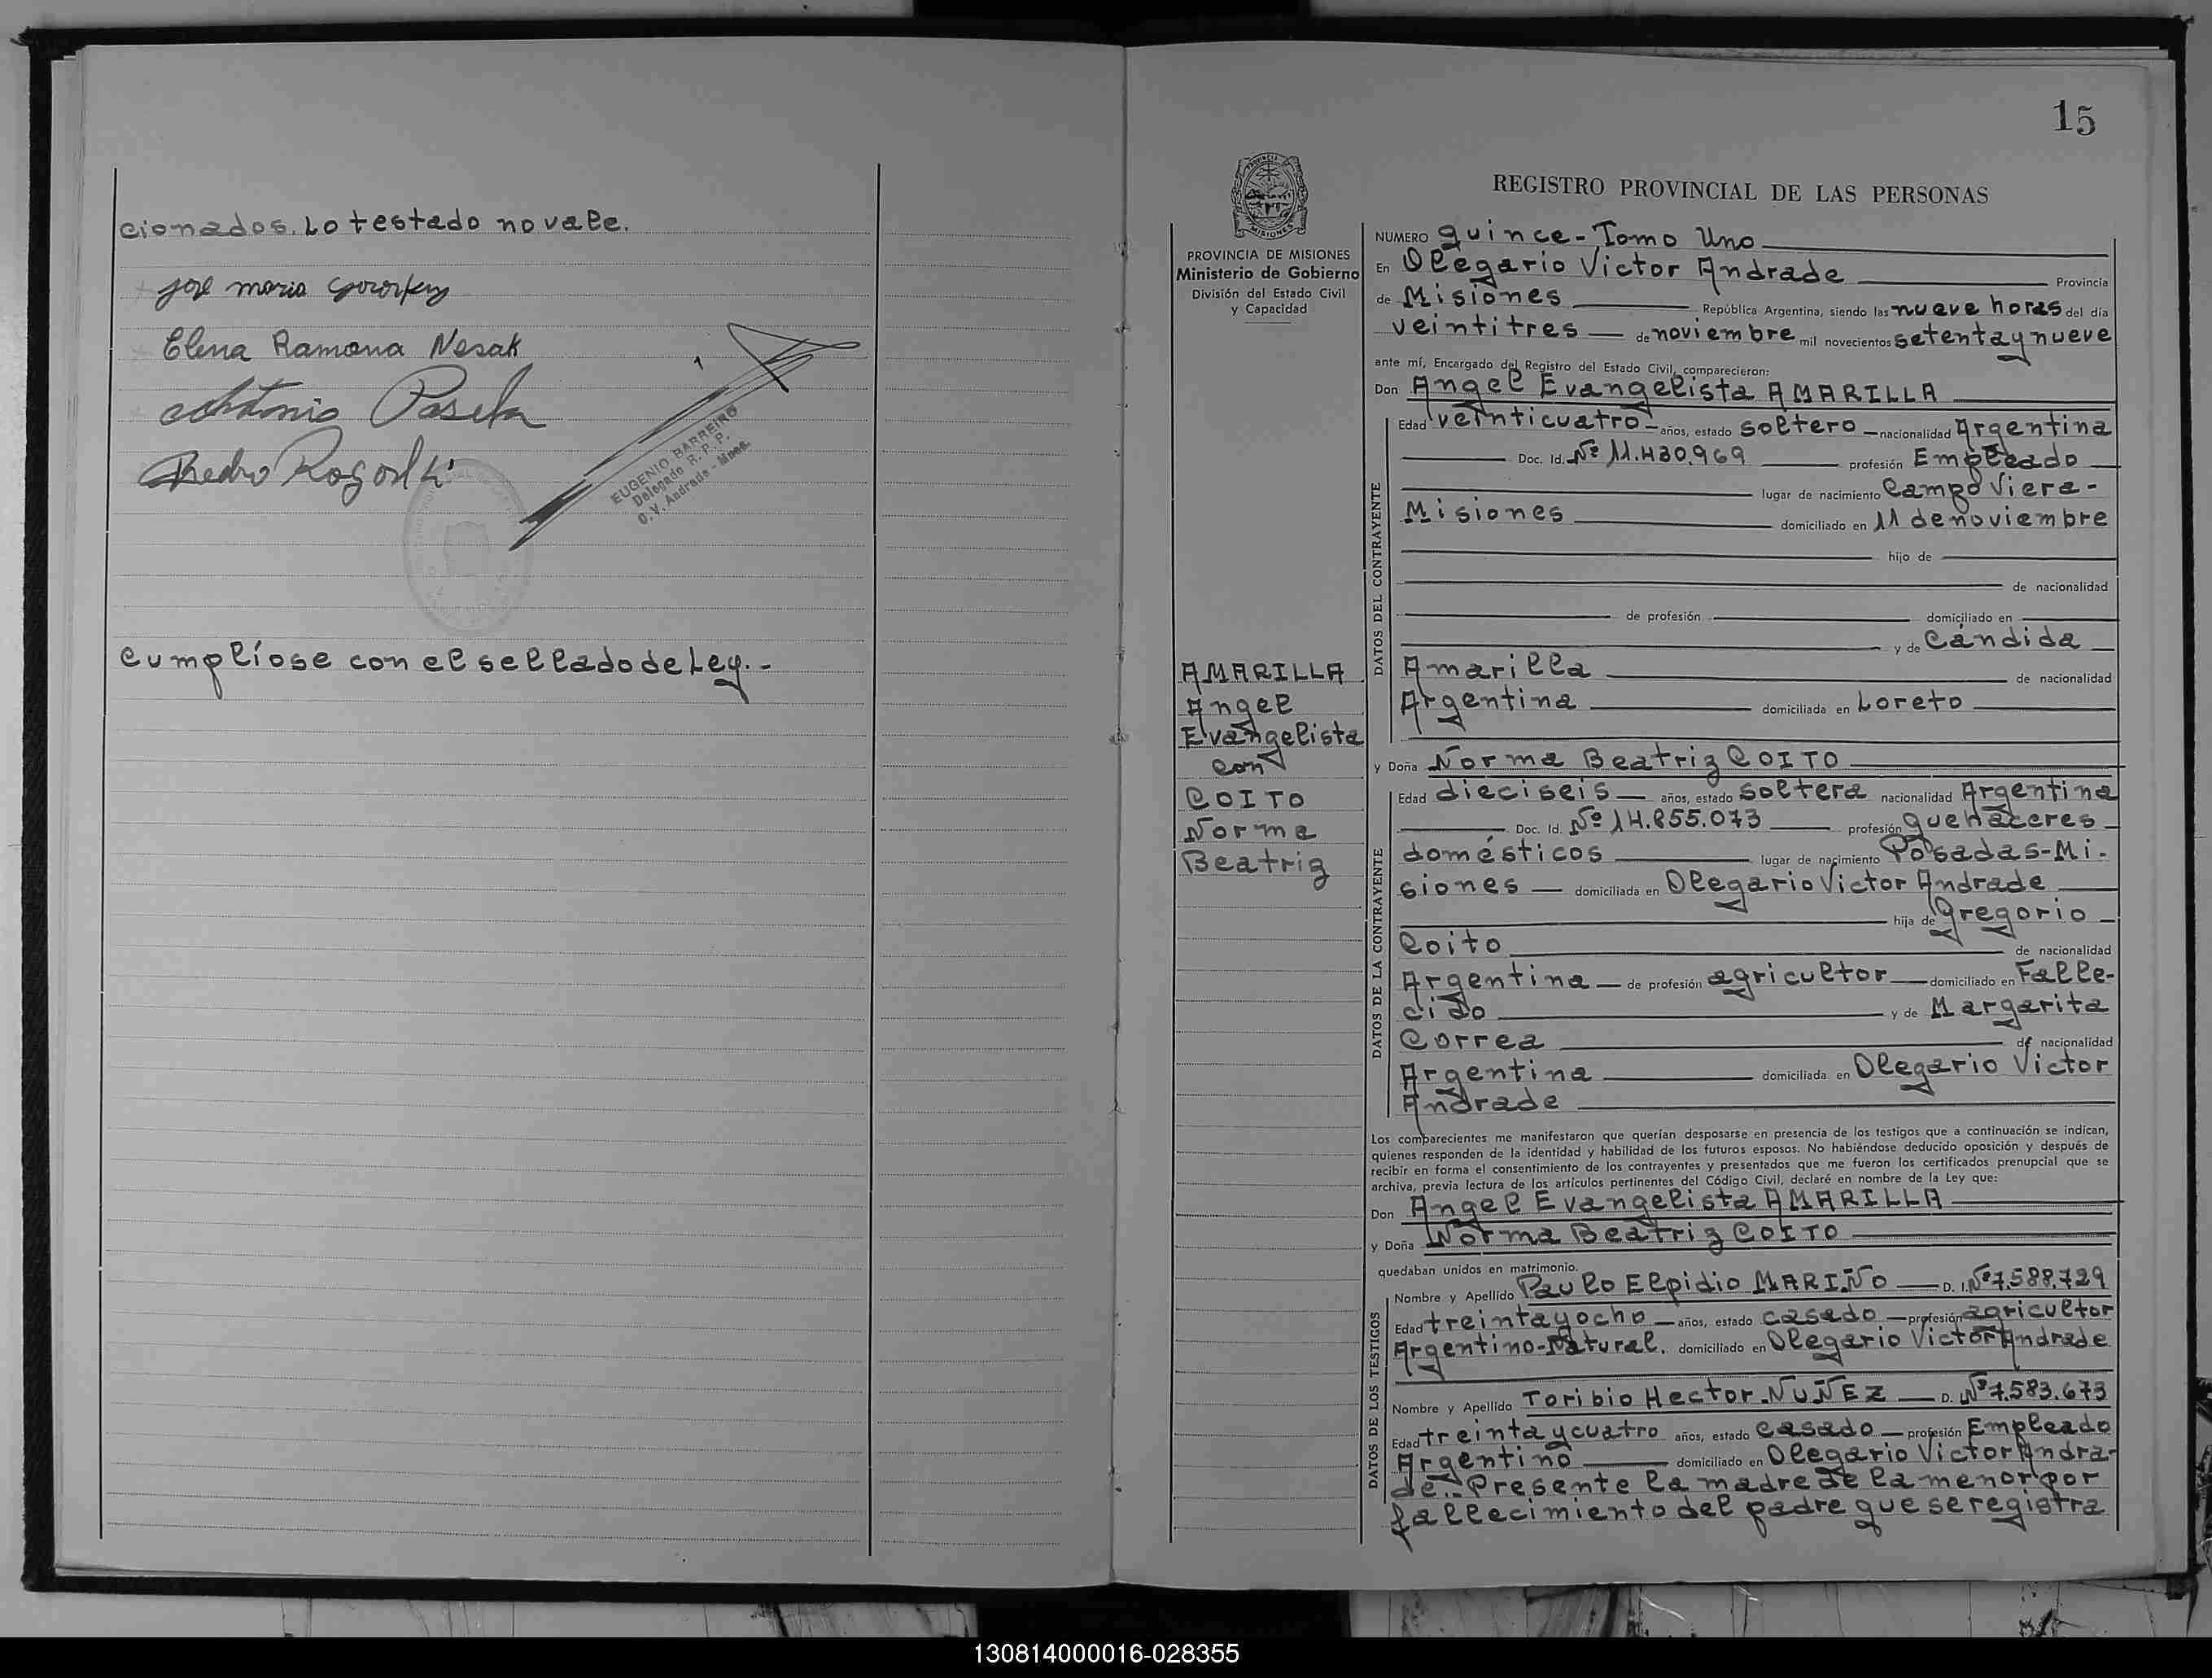 cionados. Lo testado no vale.
José maria
Elena Ramona Nesak
Antonio
Pedro
EUGENIO BARREIRO
Delegado R. P. P.
O. V. Andrade - Mnes.
Cumplióse con el sellado de Ley.-
15
REGISTRO PROVINCIAL DE LAS PERSONAS
PROVINCIA DE MISIONES
Ministerio de Gobierno
División del Estado Civil
y Capacidad
AMARILLA
Angel
Evangelista
con
COITO
Norma
Beatriz
NUMERO quince - Tomo Uno
En Olegario Victor Andrade Provincia
de Misiones República Argentina, siendo las nueve horas del día
veintitres de noviembre mil novecientos setenta y nueve
ante mí, Encargado del Registro del Estado Civil, comparecieron:
Don Angel Evangelista AMARILLA
DATOS DEL CONTRAYENTE
Edad veinticuatro años, estado soltero nacionalidad Argentina
Doc. Id. Nº 11.430.969 profesión Empleado
lugar de nacimiento Campo Viera -
Misiones domiciliado en 11 de noviembre
hijo de
de nacionalidad
de profesión domiciliado en
y de Cándida
Amarilla de nacionalidad
Argentina domiciliada en Loreto
y Doña Norma Beatriz COITO
DATOS DE LA CONTRAYENTE
Edad dieciseis años, estado soltera nacionalidad Argentina
Doc. Id. Nº 14.855.073 profesión quehaceres
domésticos lugar de nacimiento Posadas-Mi-
siones domiciliada en Olegario Victor Andrade
hija de Gregorio
Coito de nacionalidad
Argentina de profesión agricultor domiciliado en Falle-
cido y de Margarita
Correa de nacionalidad
Argentina domiciliada en Olegario Victor
Andrade
Los comparecientes me manifestaron que querían desposarse en presencia de los testigos que a continuación se indican,
quienes responden de la identidad y habilidad de los futuros esposos. No habiéndose deducido oposición y después de
recibir en forma el consentimiento de los contrayentes y presentados que me fueron los certificados prenupcial que se
archiva, previa lectura de los artículos pertinentes del Código Civil, declaré en nombre de la Ley que:
Don Angel Evangelista AMARILLA
y Doña Norma Beatriz COITO
quedaban unidos en matrimonio.
DATOS DE LOS TESTIGOS
Nombre y Apellido Paulo Elpidio MARIÑO D. I. Nº 7.588.729
Edad treinta y ocho años, estado casado profesión agricultor
Argentino-Natural. domiciliado en Olegario Victor Andrade
Nombre y Apellido Toribio Hector NUÑEZ D. I. Nº 7.583.673
Edad treinta y cuatro años, estado casado profesión Empleado
Argentino domiciliado en Olegario Victor Andra-
de.- Presente la madre de la menor por
fallecimiento del padre que se registra
130814000016-028355